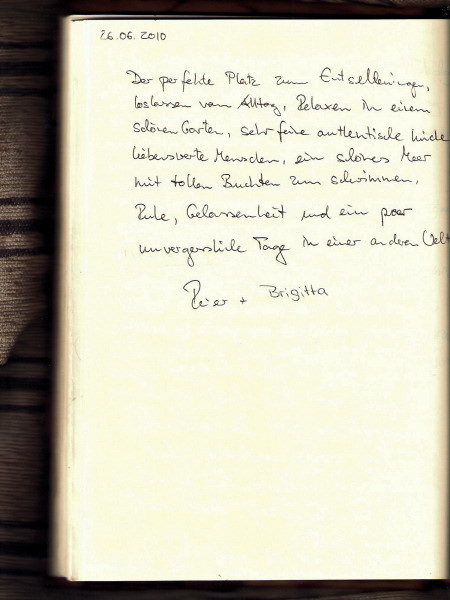 26.06.2010
Der perfekte Platz zum Entschleunigen,
loslassen vom Alltag, Relaxen in einem
schönen Garten, sehr feine authentische Küche
liebenswerte Menschen, ein schönes Meer
mit tollen Buchten zum schwimmen,
Ruhe, Gelassenheit und ein paar
unvergessliche Tage in einer anderen Welt
+ Brigitta